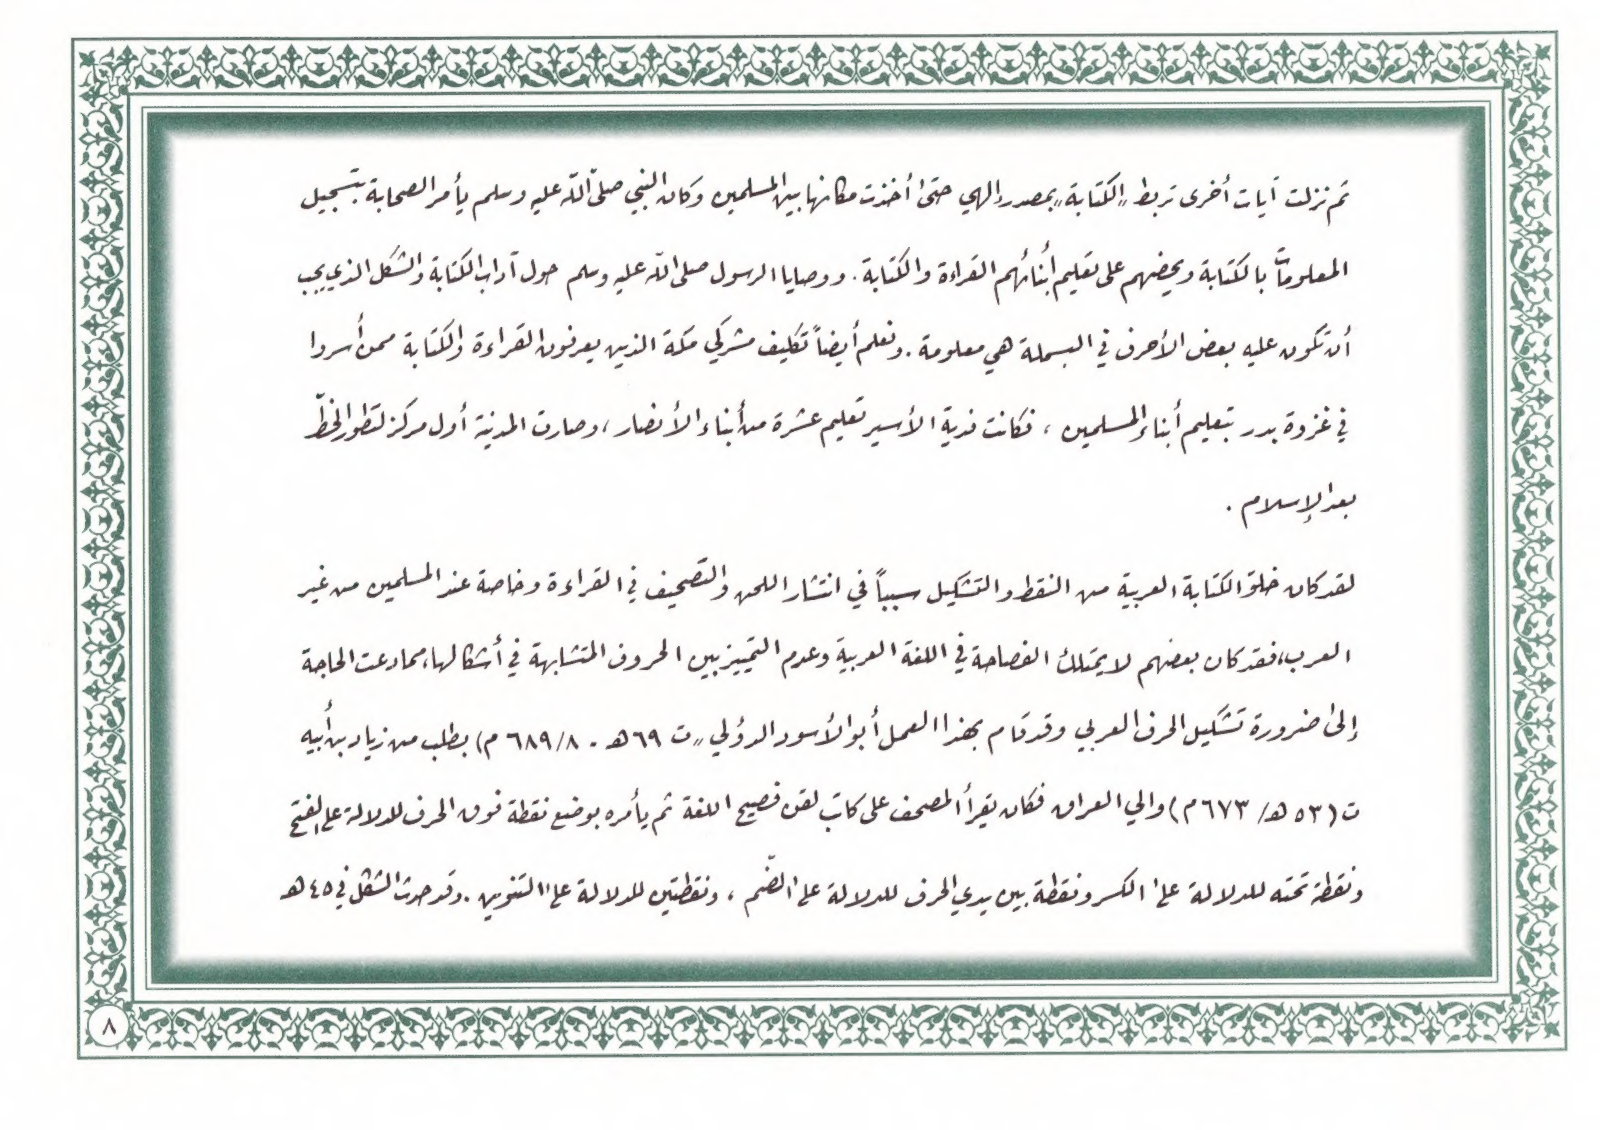 ثم نزلت آيات أخرى تربط "الكتابة" بمصدر إلهي حتى أخذت مكانها بين المسلمين وكان النبي صلى الله عليه وسلم يأمر الصحابة بتسجيل
المعلومات بالكتابة ويحضهم على تعليم أبنائهم القراءة والكتابة . ووصايا الرسول صلى الله عليه وسلم حول آداب الكتابة والشكل الذي يجب
أن تكون عليه بعض الأحرف في البسملة هي معلومة . ونعلم أيضاً تكليف مشركي مكة الذين يعرفون القراءة والكتابة ممن أُسروا
في غزوة بدر بتعليم أبناء المسلمين ، فكانت فدية الأسير تعليم عشرة من أبناء الأنصار ، وصارت المدينة أول مركز لتطور الخطّ
بعد الإسلام .
لقد كان خلوّ الكتابة العربية من النقط والتشكيل سبباً في انتشار اللحن والتصحيف في القراءة وخاصة عند المسلمين من غير
العرب، فقد كان بعضهم لا يمتلك الفصاحة في اللغة العربية وعدم التمييز بين الحروف المتشابهة في أشكالها، مما دعت الحاجة
إلى ضرورة تشكيل الحرف العربي وقد قام بهذا العمل أبو الأسود الدؤلي "ت ٦٩هـ - ٦٨٩/٨ م) بطلب من زياد بن أبيه
ت (٥٣ هـ/ ٦٧٣م) والي العراق فكان يقرأ المصحف على كاتب لقن فصيح اللغة ثم يأمره بوضع نقطة فوق الحرف للدلالة على الفتح
ونقطة تحته للدلالة على الكسر ونقطة بين يدي الحرف للدلالة على الضّم ، ونقطتين للدلالة على التنوين . وقد حدث الشكل في ٤٥هـ
٨